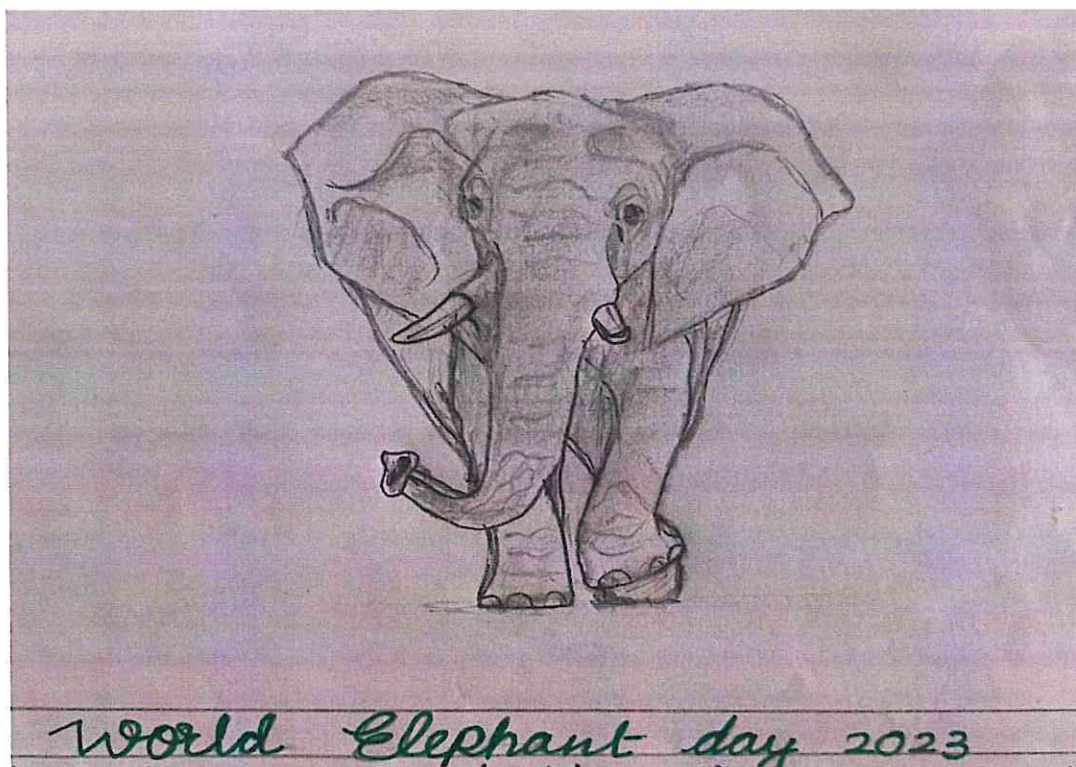 World Elephant day 2023